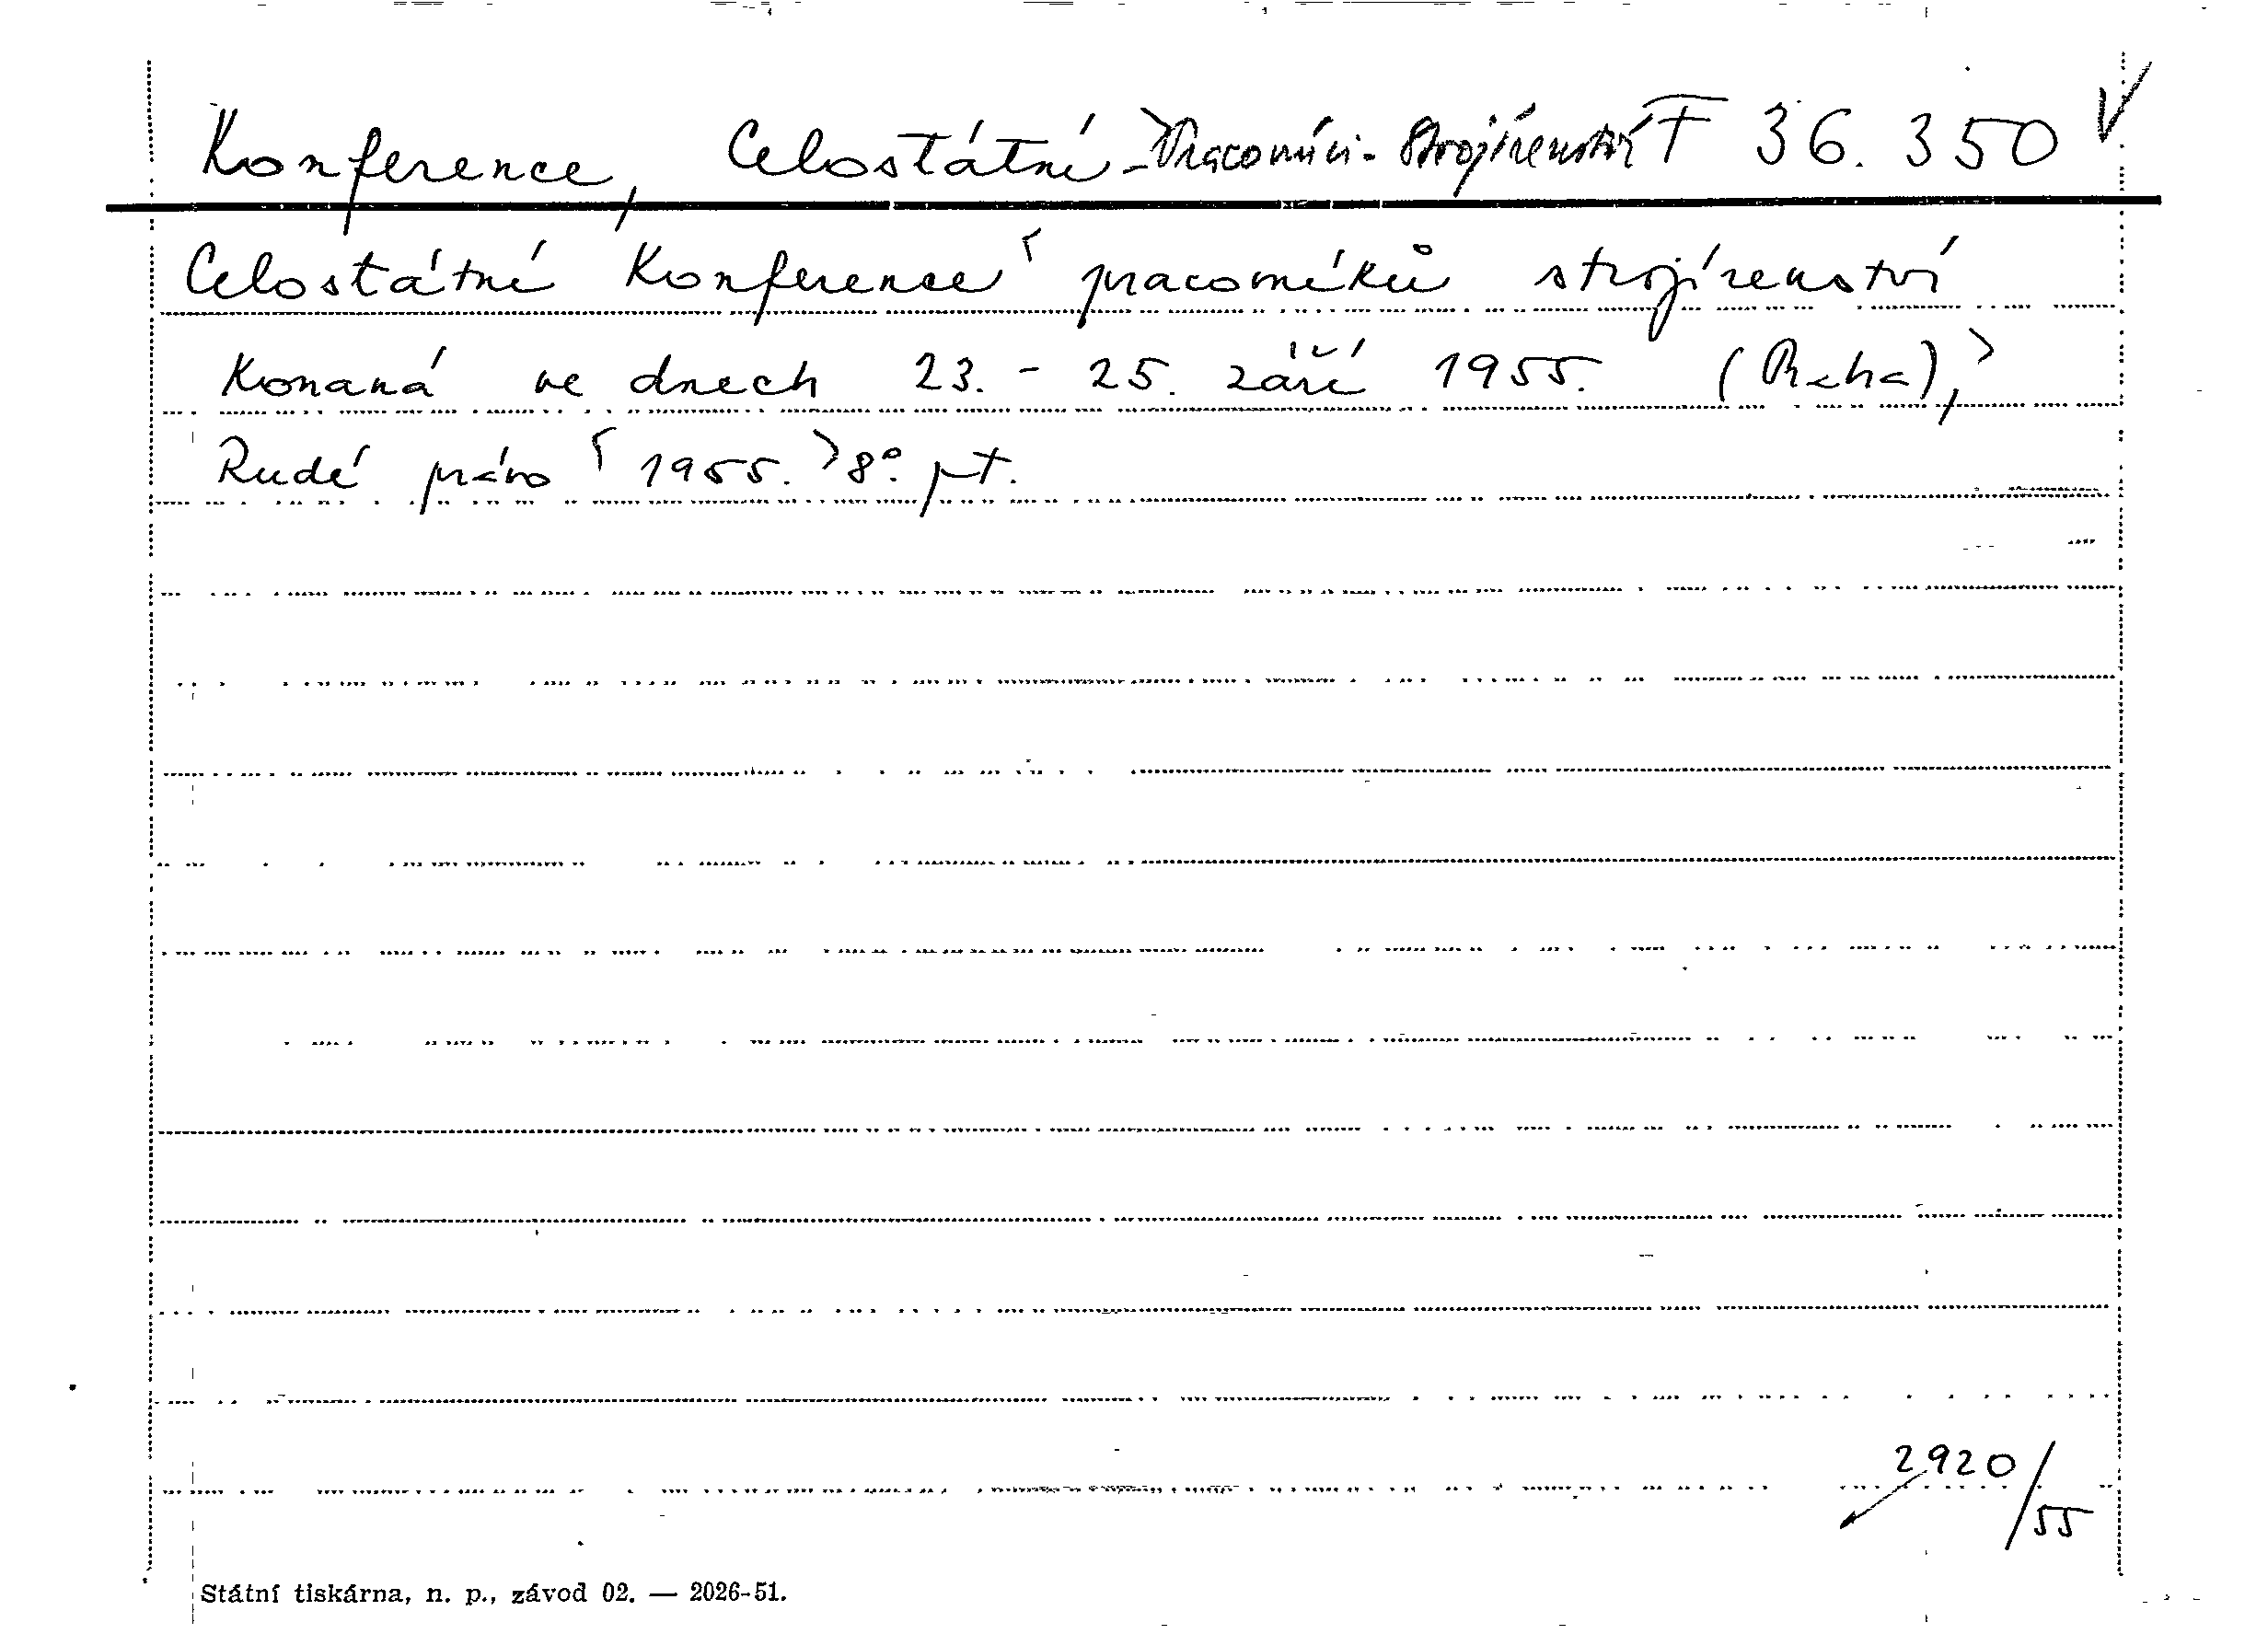 Konference, Celostátní - Pracovníci - Strojírenství F 36.350
Celostátní Konference pracovníků strojírenství
Konaná ve dnech 23. - 25. září 1955. (Praha),
Rudé právo 1955. 8°. pt.
2920/55
Státní tiskárna, n. p., závod 02. — 2026-51.